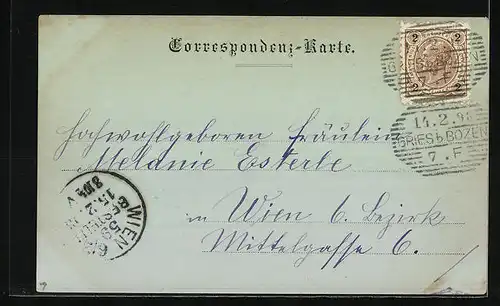 Correspondenz-Karte.
2 2
14.2.98
GRIES b. BOZEN
7.F
Hochwohlgeboren Fräulein
Melanie Esterle
in Wien 6. Bezirk
Mittelgasse 6.
WIEN
15.2